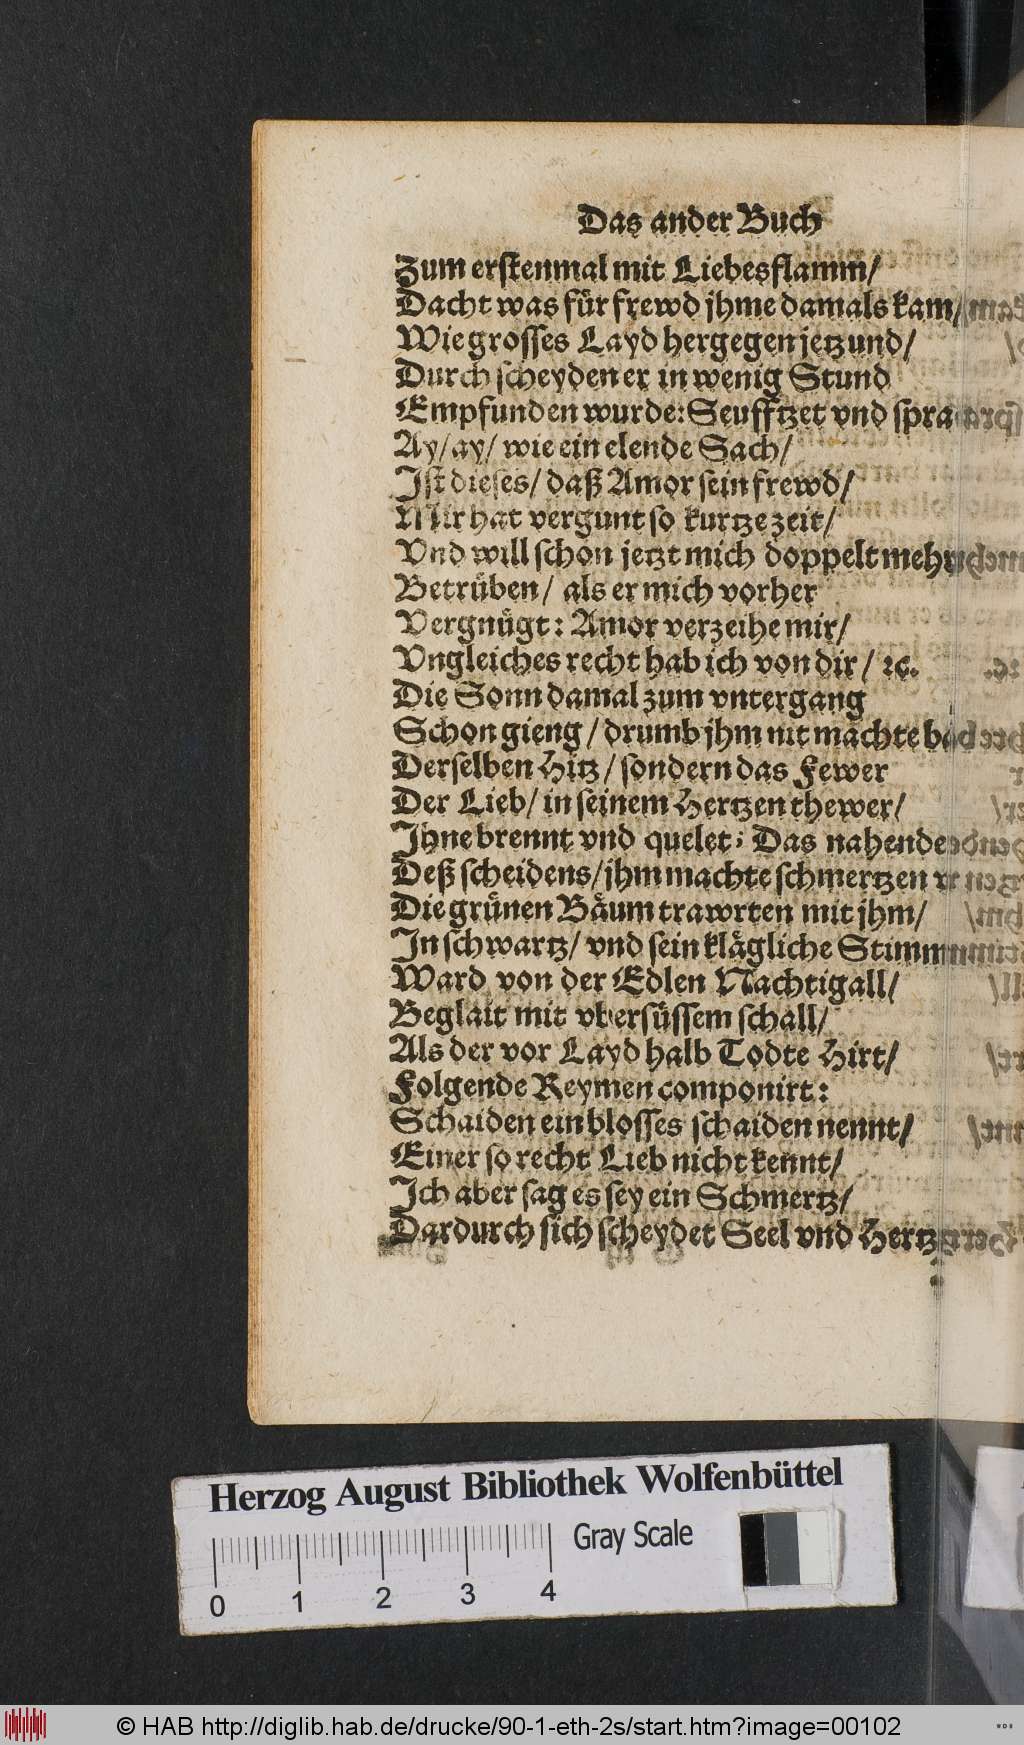 Das ander Buch
Zum erstenmal mit Liebesflamm/
Dacht was für frewd jhme damals kam/
Wie grosses Layd hergegen jetzund/
Durch scheyden er in wenig Stund
Empfunden wurde: Seufftzet vnd
Ay/ ay/ wie ein elende Sach/
Ist dieses/ daß Amor sein frewd/
Mir hat vergunt so kurtze zeit/
Vnd will schon jetzt mich doppelt mehr
Betrüben/ als er mich vorher
Vergnügt: Amor verzeihe mir/
Vngleiches recht hab ich von dir/ ꝛc.
Die Sonn damal zum vntergang
Schon gieng/ drumb jhm nit machte
Derselben Hitz/ sondern das Fewer
Der Lieb/ in seinem Hertzen thewer/
Ihne brennt vnd quelet; Das nahende
Deß scheidens/ jhm machte schmertzen
Die grünen Bäum trawrten mit jhm/
In schwartz/ vnd sein klägliche Stimm
Ward von der Edlen Nachtigall/
Beglait mit vbersüssem schall/
Als der vor Layd halb Todte Hirt/
Folgende Reymen componirt:
Schaiden ein blosses schaiden nennt/
Einer so recht Lieb nicht kennt/
Ich aber sag es sey ein Schmertz/
Dardurch sich scheydet Seel vnd Hertz
Herzog August Bibliothek Wolfenbüttel
Gray Scale
0 1 2 3 4
© HAB http://diglib.hab.de/drucke/90-1-eth-2s/start.htm?image=00102